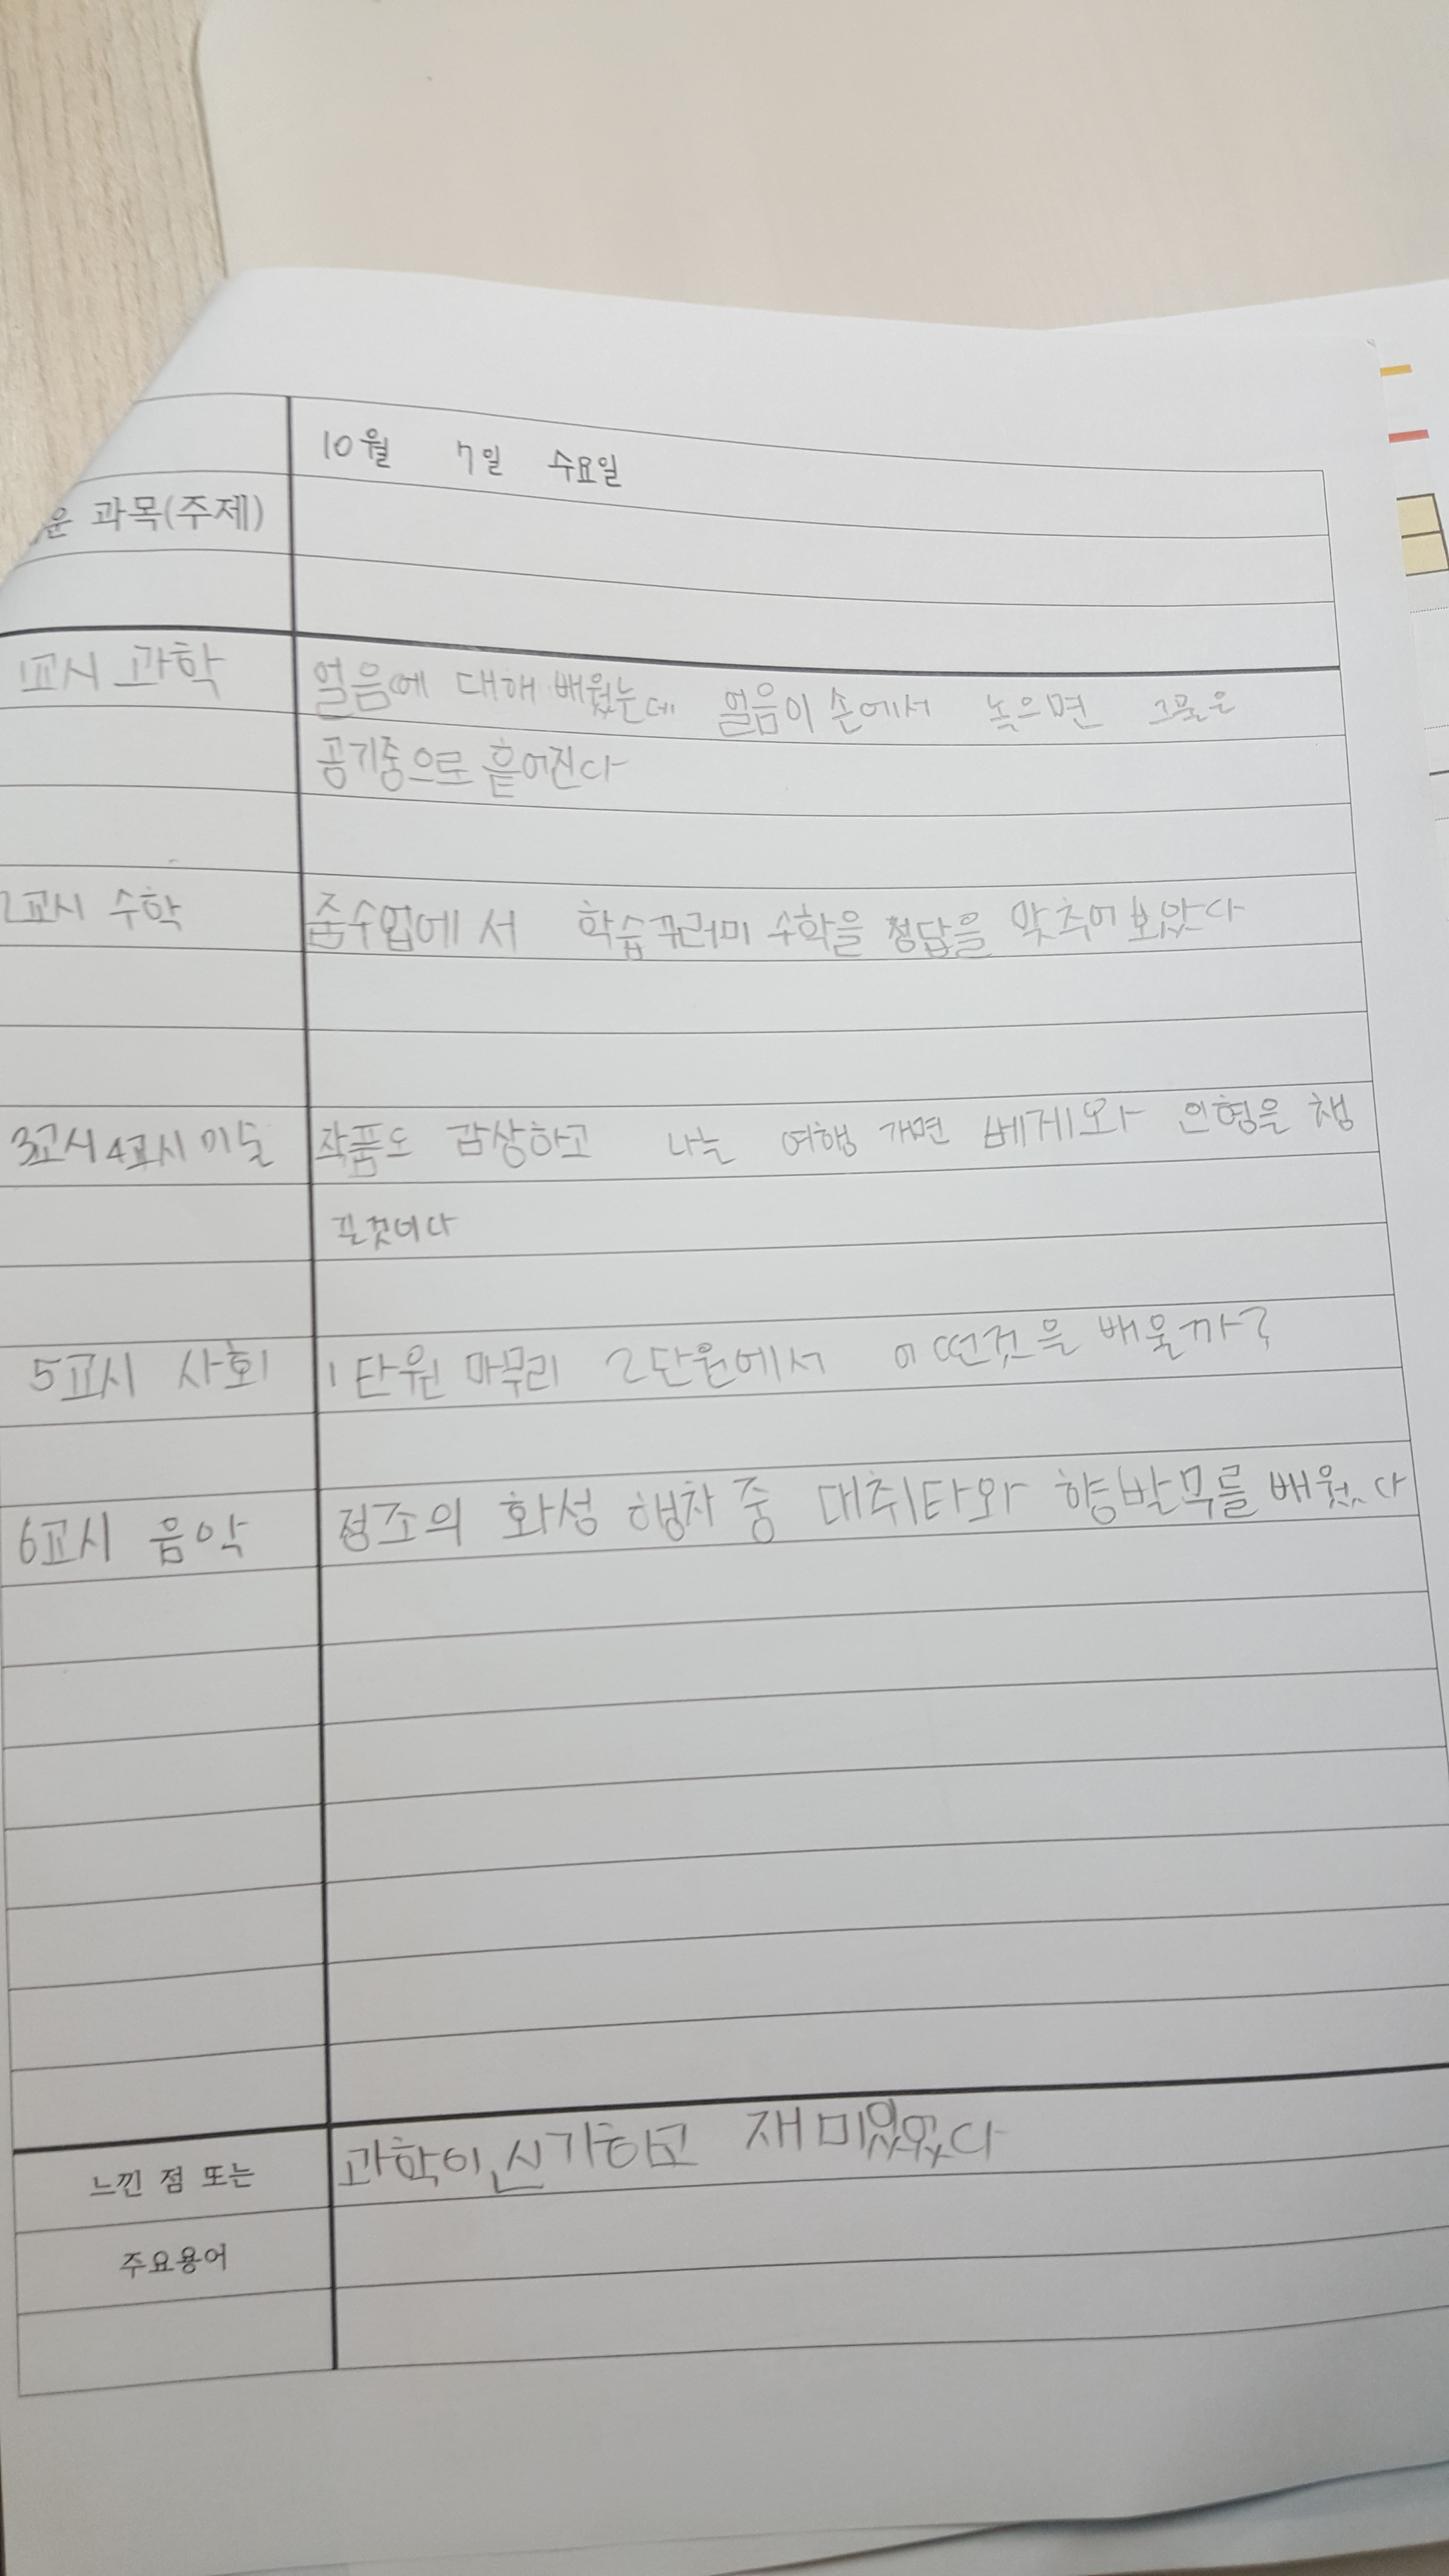 10월 7일 수요일
운 과목(주제)
1교시 과학 얼음에 대해 배웠는데 얼음이 손에서 녹으면 그물은
공기중으로 흩어진다
2교시 수학 줌수업에서 학습꾸러미 수학을 정답을 맞추어 보았다
3교시 4교시 미술 작품도 감상하고 나는 여행 개면 베게와 인형을 챙
길것이다
5교시 사회 1단원 마무리 2단원에서 어떤것을 배울까?
6교시 음악 정조의 화성 행차 중 대취타와 향발무를 배웠다
과학이 신기하고 재미있었다
느낀 점 또는
주요용어